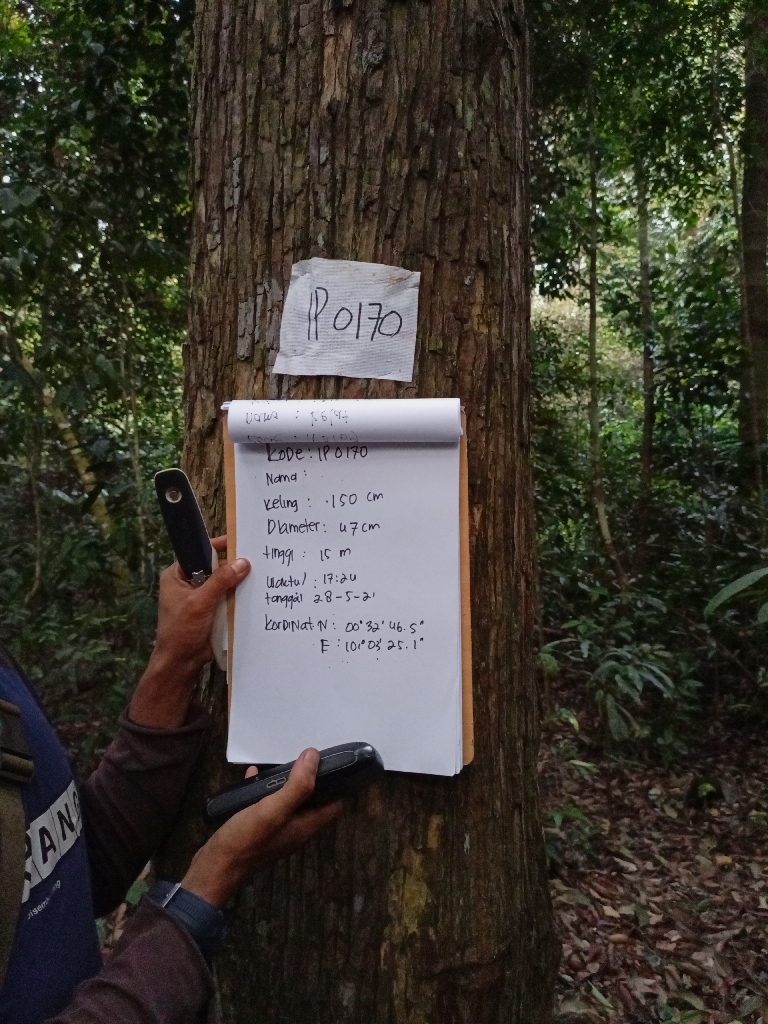 IP0170
KODE : IP0170
Nama :
Keling : 150 cm
Diameter : 47 cm
tinggi : 15 m
Waktu/ : 17:20
tanggal 28-5-21
KordiNat N : 00°32' 46.5"
E : 101°03' 25.1"
RAN